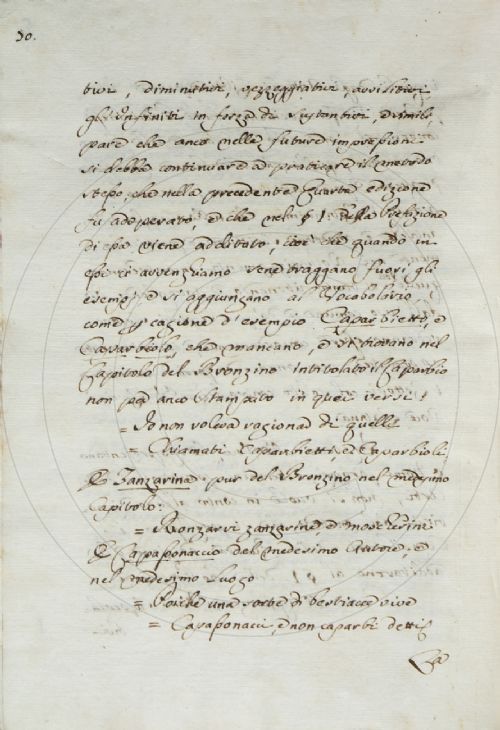 30.
tivi, diminutivi, vezzeggiativi, avvilitivi,
gl'infiniti in forza di sustantivi, e simili
pare che anco nelle future impressioni
si debba continuare a praticare il metodo
stesso, che nella precedente Quarta edizione
fu adoperato, e che nel § 1. della Prefazione
di essa viene additato, cioè che quando in
essi ci avvenghiamo se ne traggano fuori gli
esempi e si aggiungano al Vocabolario
come p cagione d'esempio Caparbietti, e
Caparbioli, che mancano, e si trovano nel
Capitolo del Bronzino intitolato il Caparbio
non per anco stampato in quei versi:
= Io non voleva ragionar di quelli
= Chiamati Caparbietti, e Caparbioli.
E Zanzarina pur del Bronzino nel medesimo
Capitolo:
= Ronzarvi zanzarine, e moscherini:
E Capassonaccio del medesimo Autore e
nel medesimo luogo
= Poiche una sorte di bestiacce vive
= Capassonacci, e non caparbi detti